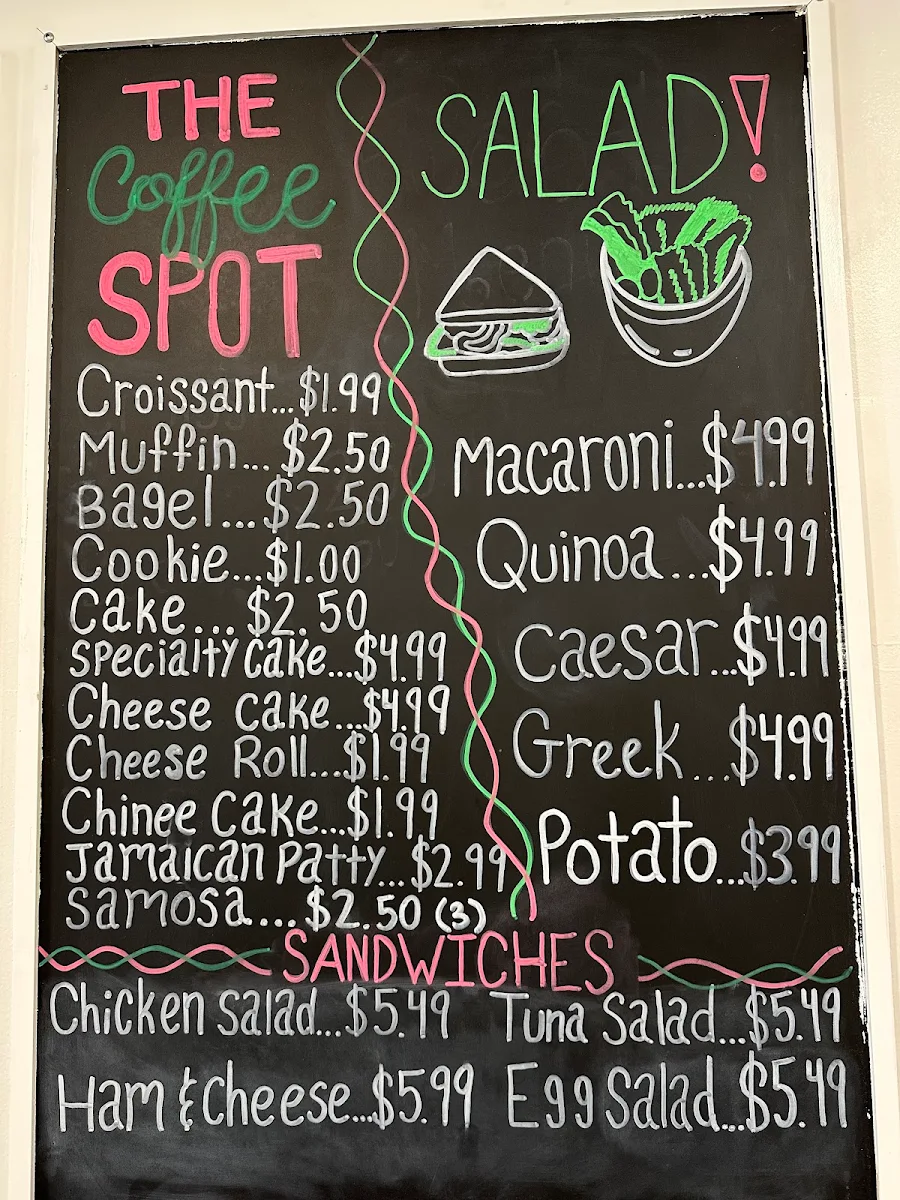 THE
Coffee
SPOT
Croissant...$1.99
Muffin...$2.50
Bagel...$2.50
Cookie...$1.00
Cake...$2.50
Specialty Cake...$4.99
Cheese Cake...$4.99
Cheese Roll...$1.99
Chinee Cake...$1.99
Jamaican Patty...$2.99
Samosa...$2.50 (3)
SALAD!
Macaroni...$4.99
Quinoa...$4.99
Caesar...$4.99
Greek...$4.99
Potato...$3.99
SANDWICHES
Chicken Salad...$5.49
Tuna Salad...$5.49
Ham & Cheese...$5.99
Egg Salad...$5.49